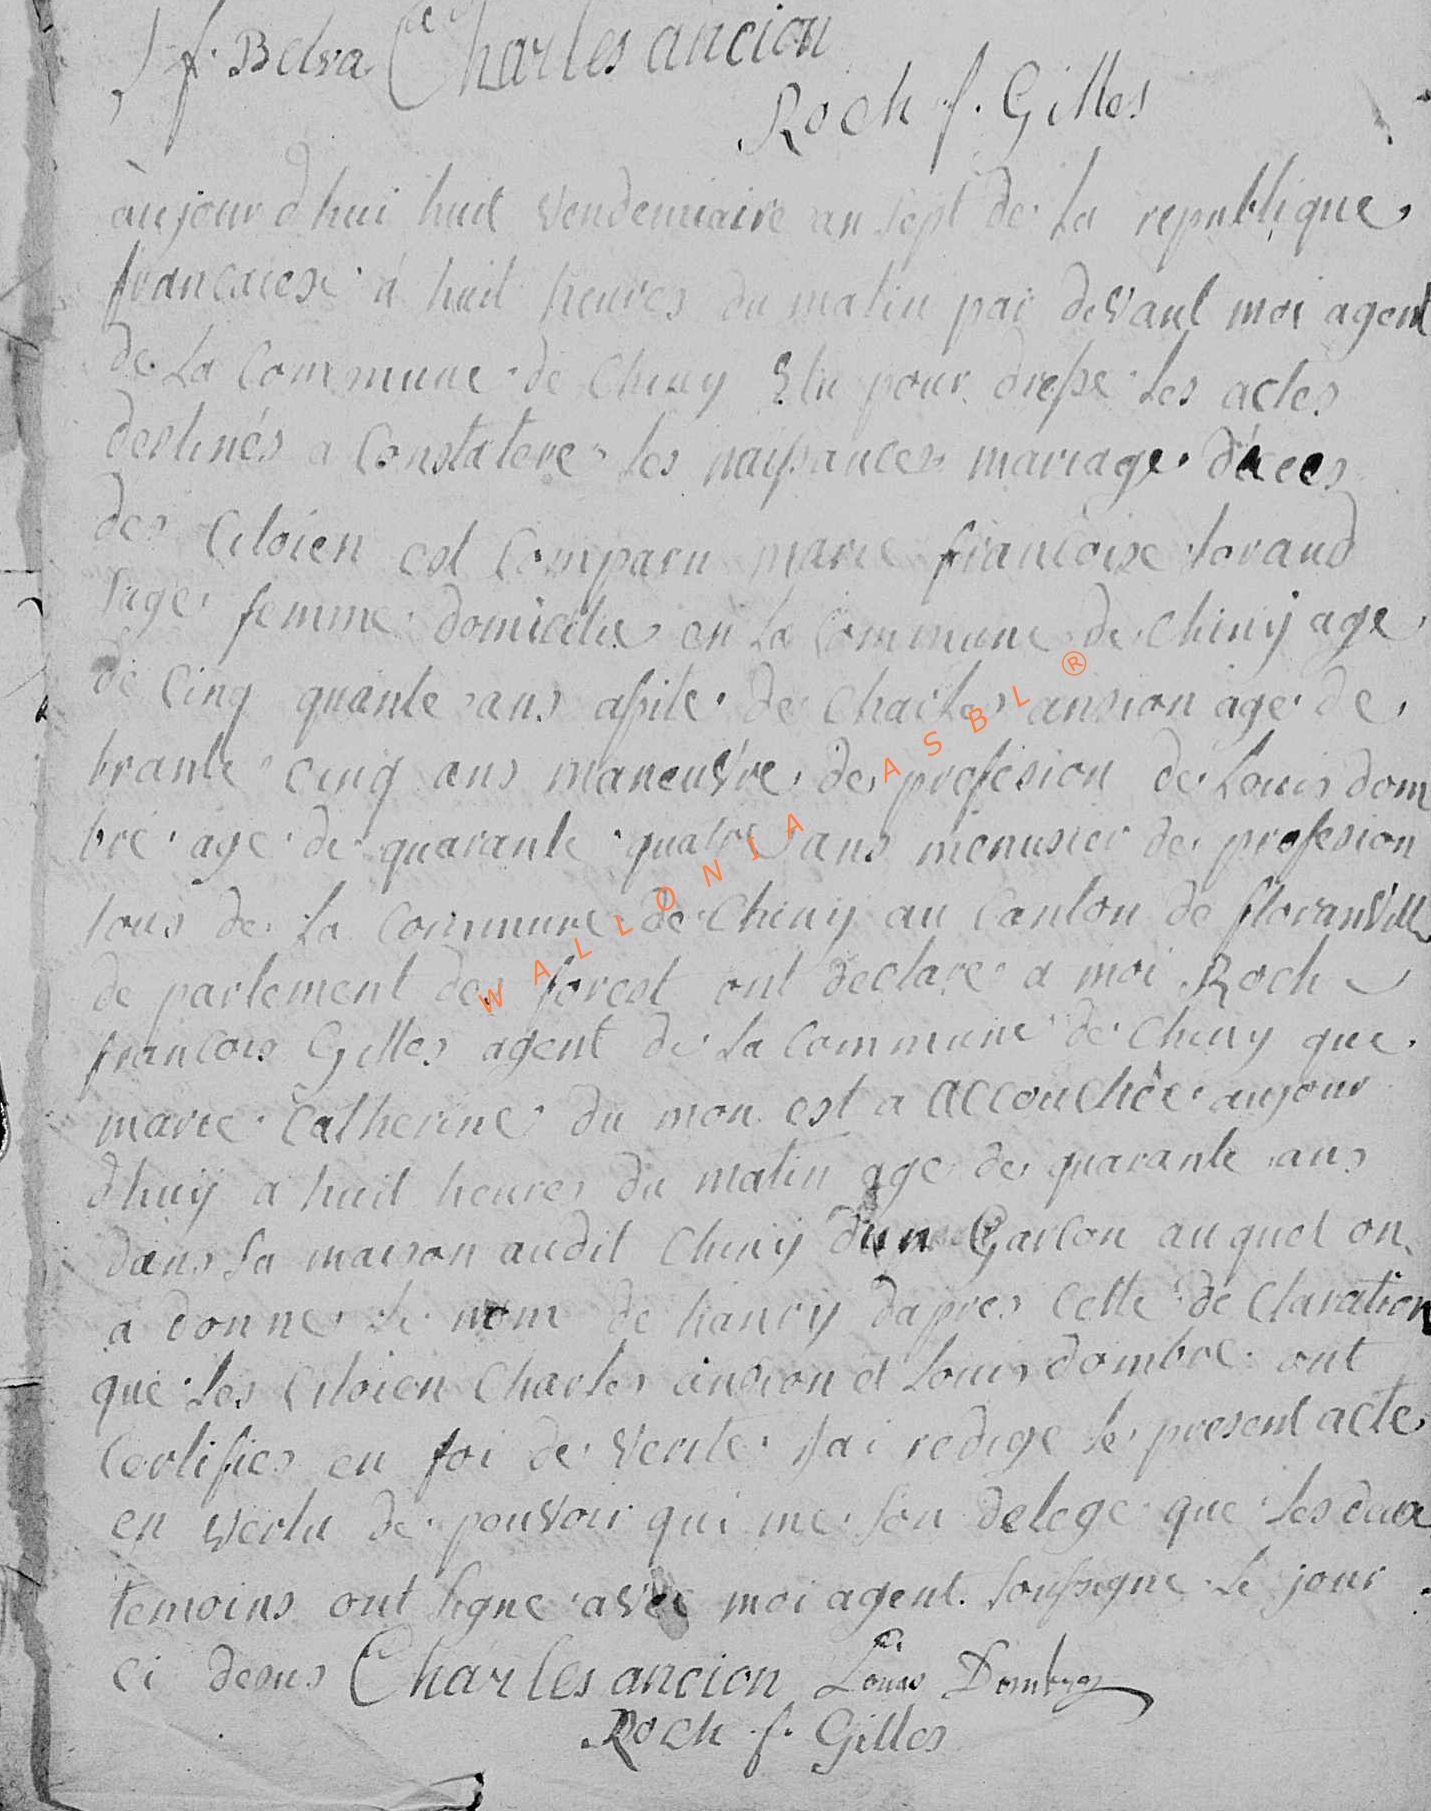 J f. Belva Charles ancion
Roch f. Gilles
aujourdhui huit vendemiaire an sept de la republique
francaiese a huit heures du matin par devant moi agent
de la Commune de Chiny Elu pour dresse les actes
destinés a Constatere les naissances mariage décces
des Citoien est Comparu marie francoise loraud
sage femme domicilie en la Commune de Chiny age
de Cinq quante ans assite de Charles ansion age de
trante cinq ans maneuvre de profesion de Louis dom
bré age de quarante quatre ans menusier de profesion
tous de la Commune de Chiny au Canton de floranville
de partement des forest ont declare a moi Roch
francois Gilles agent de la Commune de Chiny que
marie Catherine du mon est a accouchée aujour
dhuy a huit heures du matin age de quarante ans
dans sa maison audit Chiny dun Garcon auquel on
a donne le nom de hanry dapres Cette de Claration
que les Citoien Charles ansion et Louis dombre ont
Certifies en foi de verite Jai redige le present acte
en vertu de pouvoir qui me son delege que les deux
temoins ont signe avec moi agent soussigne le jour
ci desus Charles ancion Louis Dombre
Roch f. Gilles
WALLONIA ASBL ®